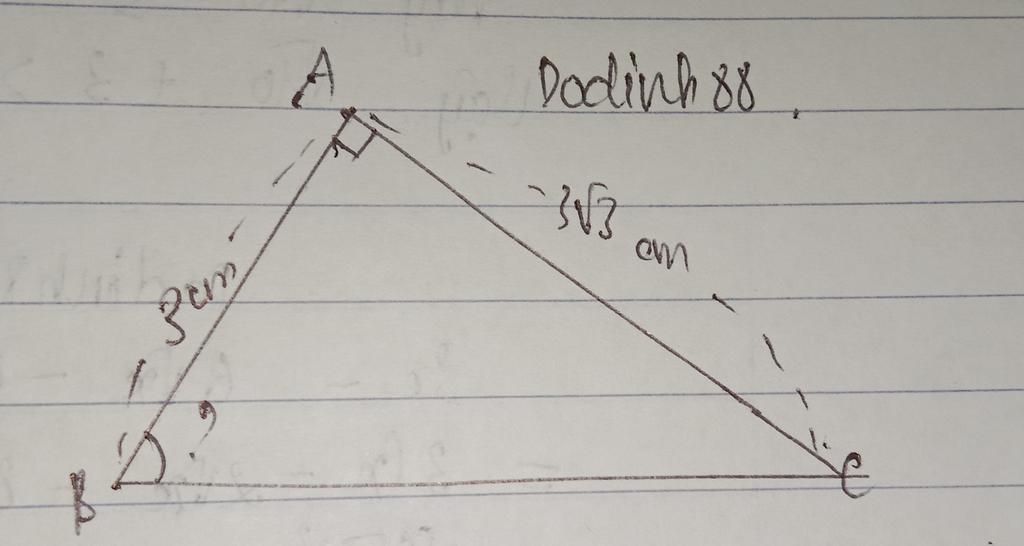 A
Dodinh88.
3√3 cm
3cm
?
B
C